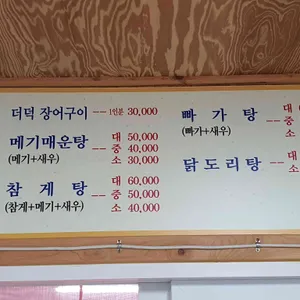 더덕 장어구이 -- 1인분 30,000
메기매운탕 (메기+새우) -- 대 50,000
중 40,000
소 30,000
참게탕 (참게+메기+새우) -- 대 60,000
중 50,000
소 40,000
빠가탕 (빠가+새우) -- 대
중
소
닭도리탕 -- 대
소